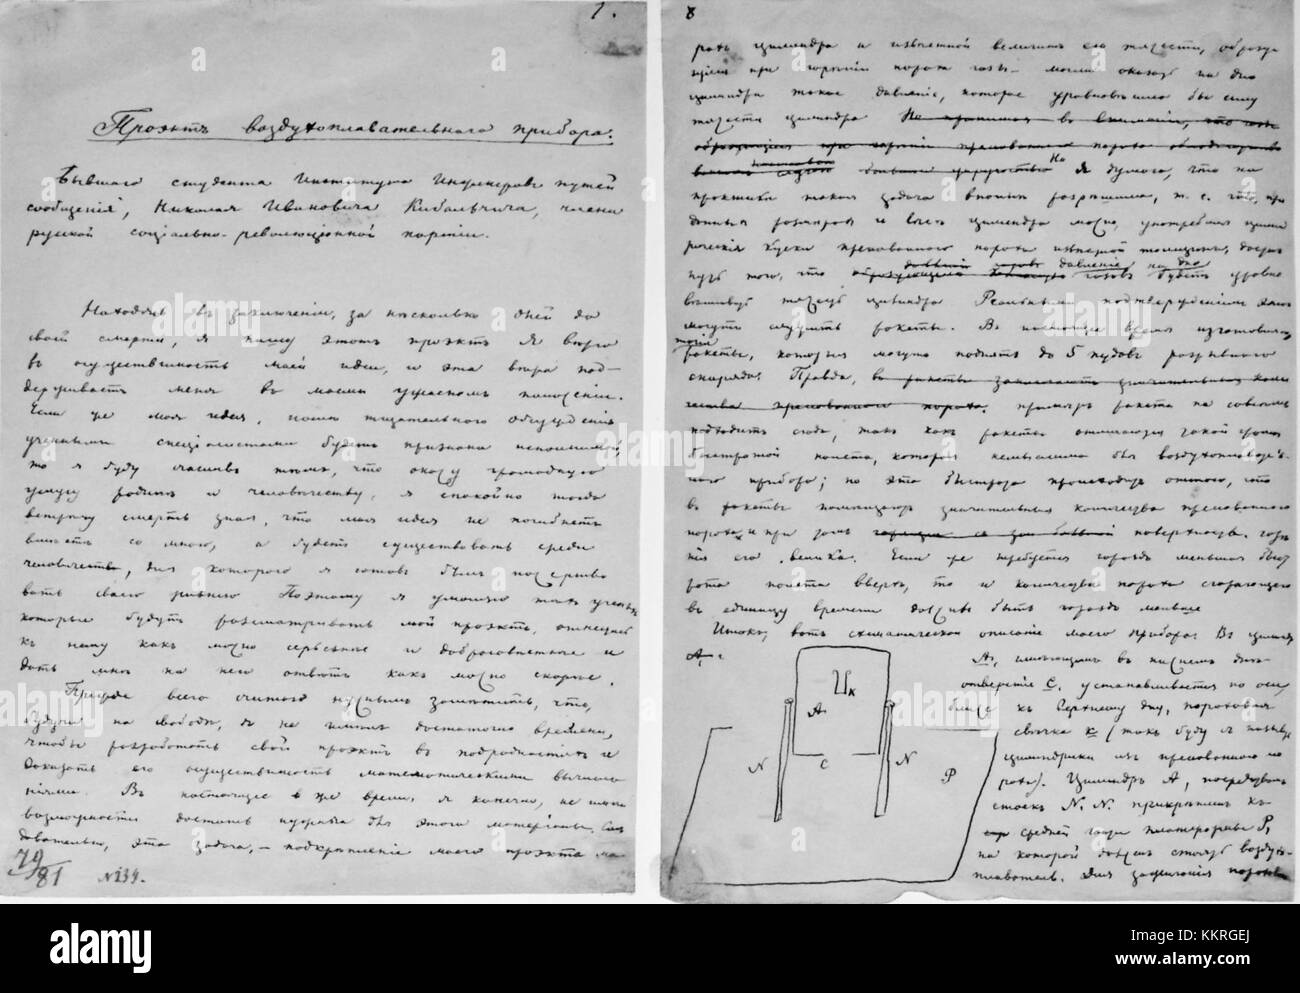 1.
Проэктъ воздухоплавательнаго прибора.
Бывшаго студента Института Инженеровъ путей
сообщенія, Николая Ивановича Кибальчича, члена
русской соціально-революціонной партіи.
Находясь въ заключеніи, за нѣсколько дней до
своей смерти, я пишу этотъ проэктъ. Я вѣрю
въ осуществимость моей идеи, и эта вѣра под-
держиваетъ меня въ моемъ ужасномъ положеніи.
Если же моя идея, послѣ тщательнаго обсужденія
учеными спеціалистами будетъ признана исполнимой,
то я буду счастливъ тѣмъ, что окажу громадную
услугу родинѣ и человѣчеству, я спокойно тогда
встрѣчу смерть зная, что моя идея не погибнетъ
вмѣстѣ со мною, а будетъ существовать среди
человѣчества, для котораго я готовъ былъ пожертво
вать своей жизнью. Поэтому я умоляю тѣхъ ученыхъ,
которые будутъ разсматривать мой проэктъ, отнестись
къ нему какъ можно серьезнѣе и добросовѣстнѣе и
дать мнѣ на него отвѣтъ какъ можно скорѣе.
Прежде всего считаю нужнымъ замѣтить, что,
будучи на свободѣ, я не имѣлъ достаточно времени,
чтобы разработать свой проэктъ въ подробностяхъ и
доказать его осуществимость математическими вычисле
ніями. Въ настоящее же время я конечно, не имѣю
возможности достать нужные для этого матеріалы. Слѣ
довательно, эта задача, – подкрѣпленіе моего проэкта ма
79/81 №139.
8
цилиндра и извѣстной величинѣ его тяжести, образу
щіеся при горѣніи пороха газы могли оказать на дно
цилиндра такое давленіе, которое уравновѣсило бы силу
тяжести цилиндра Не принимая въ вниманіи, что газы
образующіеся при горѣніи прессованнаго пороха
Но я думаю, что на
практикѣ такая задача вполнѣ разрѣшима, т. е. что, при
данныхъ размѣрахъ и вѣсѣ цилиндра можно, употребляя цилин
дрическіе куски прессованнаго пороха извѣстной толщины,
того, что давленіе газовъ на дно будетъ уравно
вѣшивать тяжесть цилиндра Реальнымъ подтвержденіемъ
могутъ служить ракеты. Въ настоящее время изготовляются
такія ракеты, которыя могутъ поднять до 5 пудовъ разрывного
снаряда. Правда, въ ракеты
количества прессованнаго пороха, примѣръ ракетъ не совсѣмъ
подходитъ сюда, такъ какъ ракеты отличаются такой
быстротой полета, которая немыслима въ воздухоплаватель
номъ приборѣ; но эта быстрота происходитъ оттого, что
въ ракеты помѣщаютъ значительныя количества прессованнаго
пороха и при этомъ поверхность горѣ
нія его велика. Если же требуется гораздо меньшая быст
рота полета вверхъ, то и количество пороха сгорающаго
въ единицу времени должно быть гораздо меньше
Итакъ, вотъ схематическое описаніе моего прибора: Въ цилинд
A, имѣющемъ въ нижнемъ днѣ
отверстіе C, устанавливается по оси,
ближе къ верхнему дну, пороховая
свѣчка K (такъ буду я называть
цилиндрики изъ прессованнаго по
роха). Цилиндръ A, посредствомъ
стоекъ N N. прикрѣпленъ къ
средней части платформы P,
на которой долженъ стоять воздухо-
плаватель. Для зажиганія
K
A
N
C
N
P
alamy
Image ID: KKRGEJ
www.alamy.com